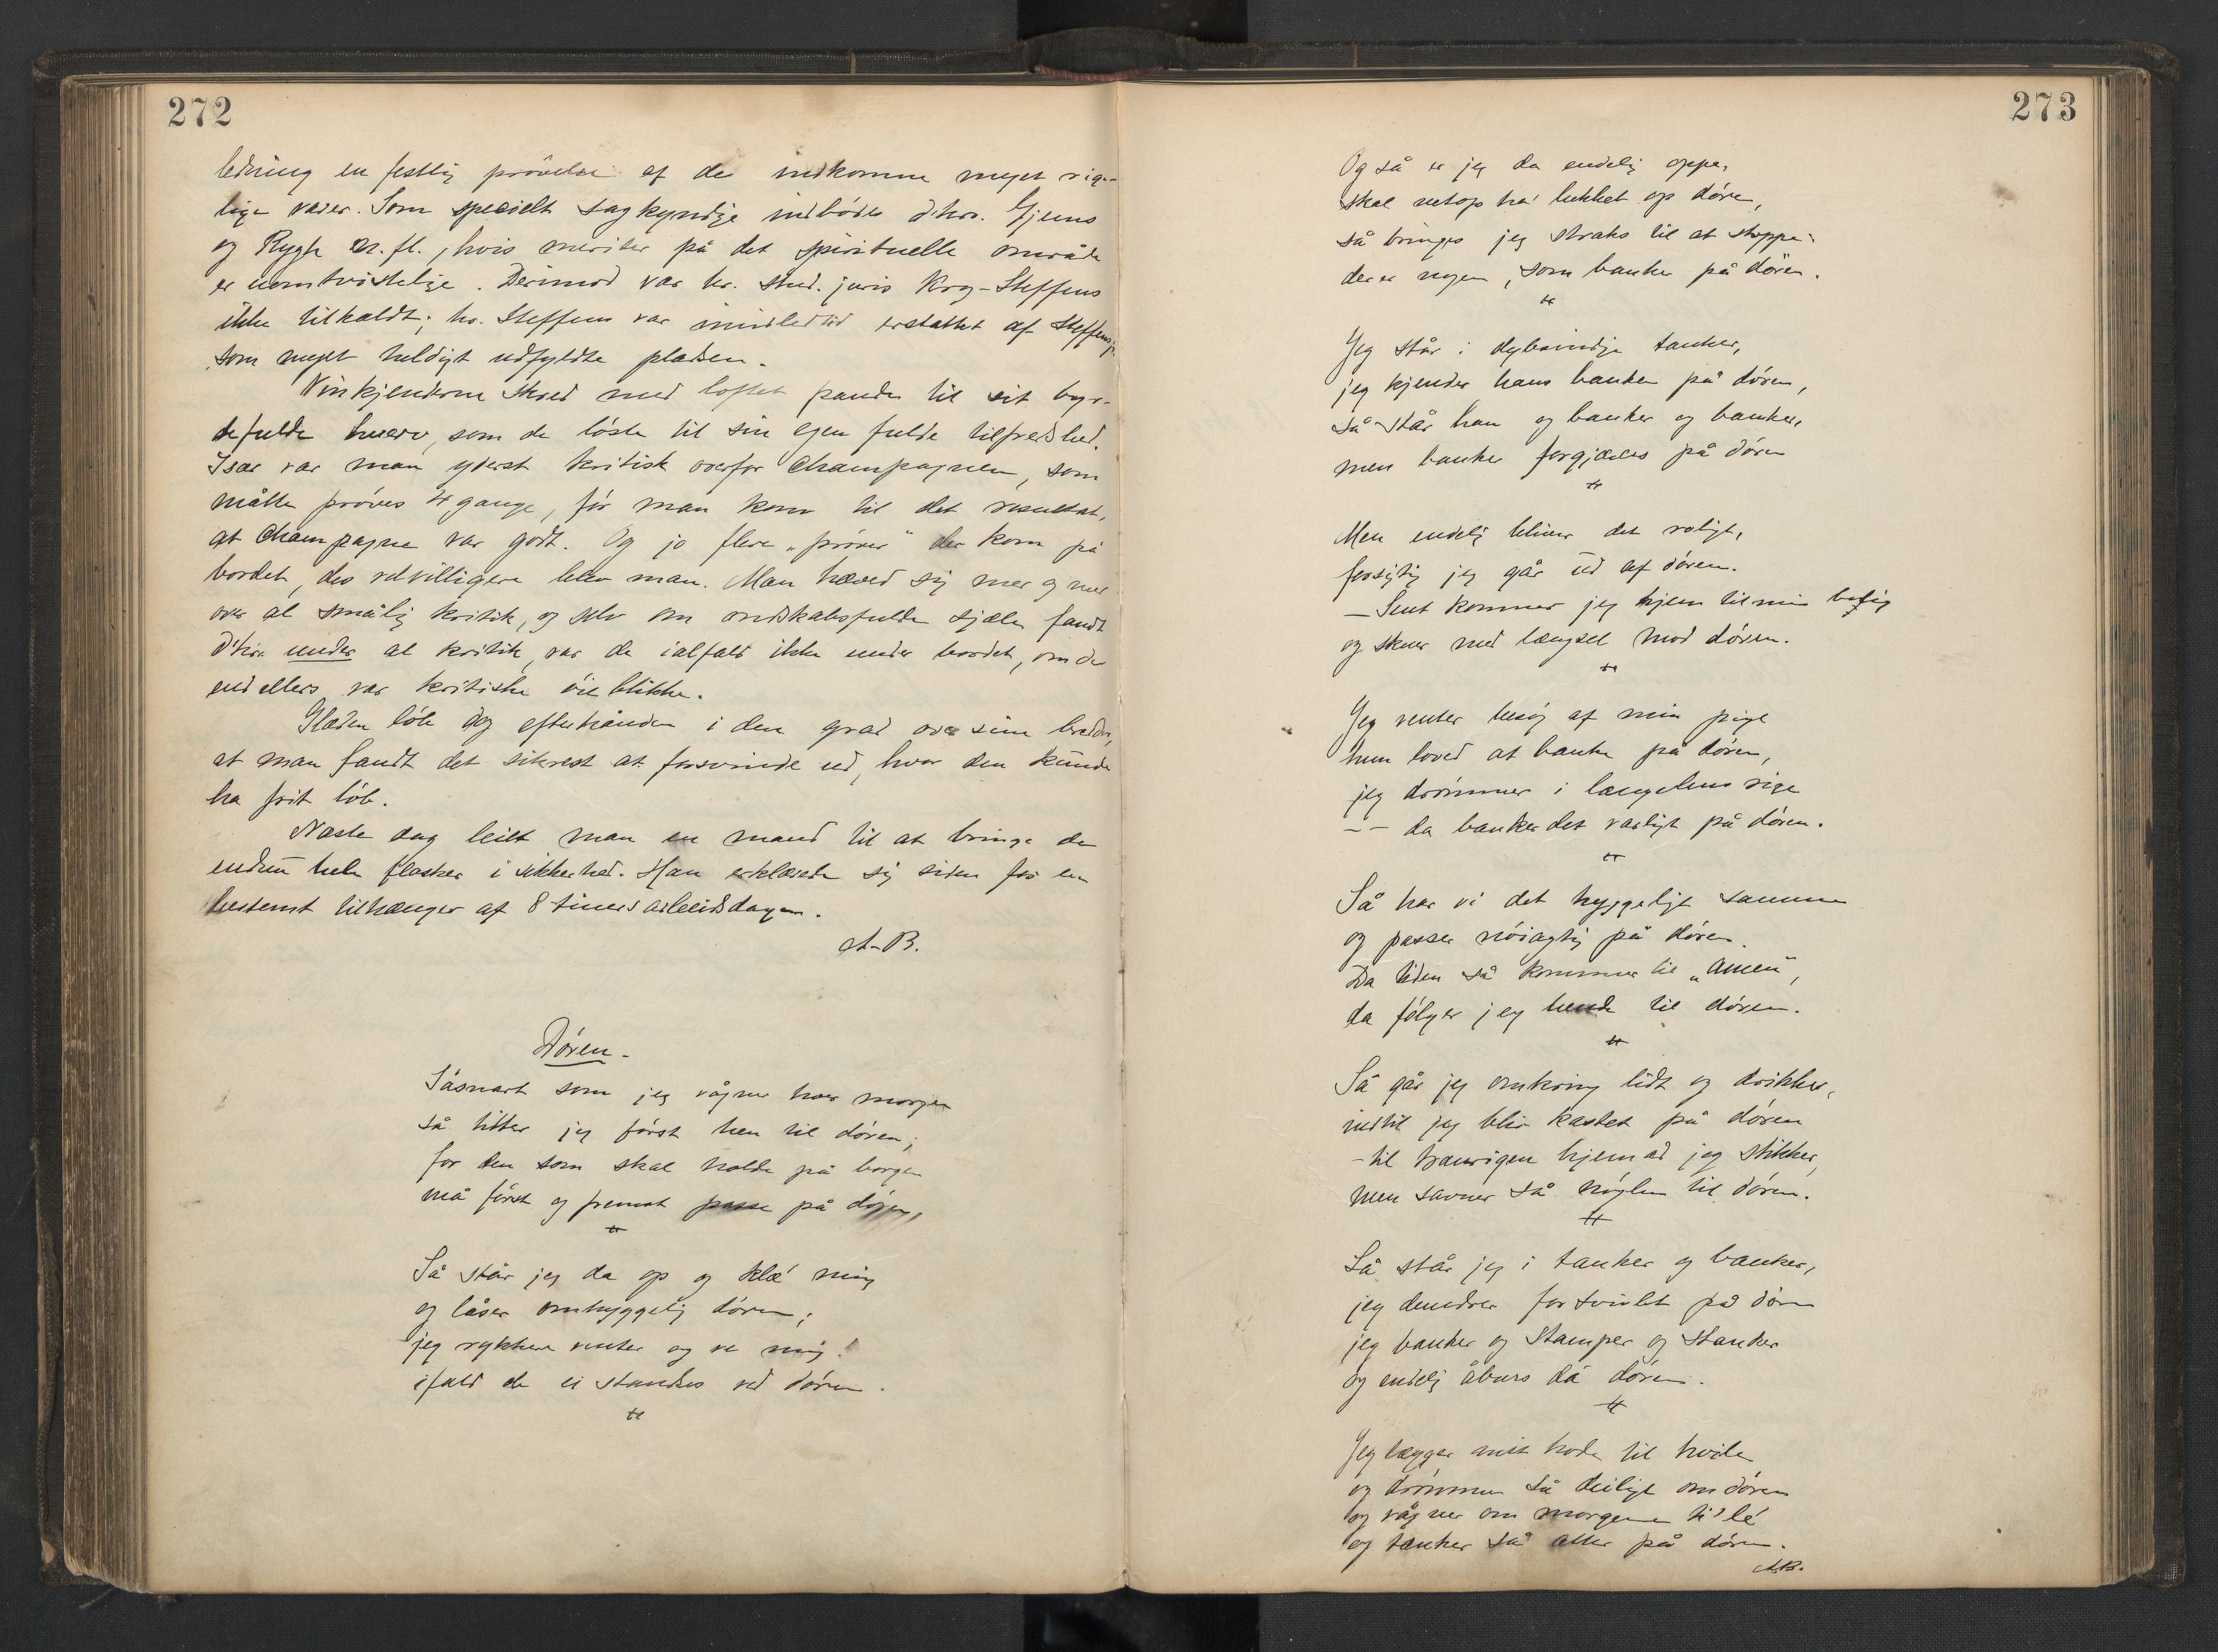 272
ledning en festlig prøvelse af de indkomne meget rige-
lige varer. Som specielt sagkyndige indbødes d'hrr. Gjems
og Rygh m. fl., hvis meriter på det spirituelle område
er uomtvistelige. Derimod var hr. stud. juris Krog-Steffens
ikke tilkaldt; hr. Steffens var imidlertid erstattet af Steffens jr.
som meget heldigt udfyldte pladsen.
Vinkjenderne skred med løftet pande til sit byr-
defulde hverv, som de løste til sin egen fulde tilfredshed.
Især var man yderst kritisk overfor Champagnen, som
måtte prøves 4 gange, før man kom til det resultat,
at Champagne var godt. Og jo flere „prøver" der kom på
bordet, des velvilligere blev man. Man hæved sig mer og mer
over al smålig kritik, og selv om ondskabsfulde sjæle fandt
d'hrr. under al kritik, var de ialfald ikke under bordet, om de
end ellers var kritiske øieblikke.
Glæden løb dog efterhånden i den grad over sine bredder,
at man fandt det sikrest at forsvinde ud, hvor den kunde
ha frit løb.
Næste dag leiet man en mand til at bringe de
endnu hele flasker i sikkerhed. Han erklærede sig siden for en
bestemt tilhænger af 8 timers arbeidsdagen.
A-B.
Døren.
Såsnart som jeg vågner hver morgen
så titter jeg først hen til døren;
for den som skal holde på borgen
må først og fremst passe på døren,
Så står jeg da op og klæ' mig
og låser omhyggelig døren;
jeg rykkere venter og ve mig!
ifald de ei standses ved døren.
273
Og så er jeg da endelig oppe,
skal netop ha' lukket op døren,
så bringes jeg straks til at stoppe:
der er nogen, som banker på døren.
Jeg står i dybsindige tanker,
jeg kjender hans banken på døren,
så står han og banker og banker,
men banker forgjæves på døren
Men endelig bliver det roligt,
forsigtig jeg går ud af døren.
– Sent kommer jeg hjem til min bolig
og skuer med længsel mod døren.
Jeg venter besøg af min pige
hun loved at banke på døren,
jeg drømmer i længselens rige
– – da banker det varligt på døren.
Så har vi det hyggeligt sammen
og passer nøiagtig på døren.
Da tiden så kommer til „amen",
da følger jeg hende til døren.
Så går jeg omkring lidt og drikker,
indtil jeg blir kastet på døren
– til traurigen hjemad jeg stikker,
men savner så nøglen til døren.
Så står jeg i tanker og banker,
jeg dundrer fortvivlet på døren
jeg banker og stamper og stanker
og endelig åbnes da døren.
Jeg lægger mit hode til hvile
og drømmer så deiligt om døren
og vågner om morgenen ti'lé
og tænker så atter på døren.
AB.